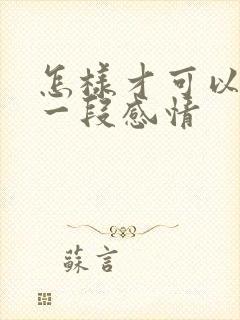 怎樣才可以
一段感情
蘇言